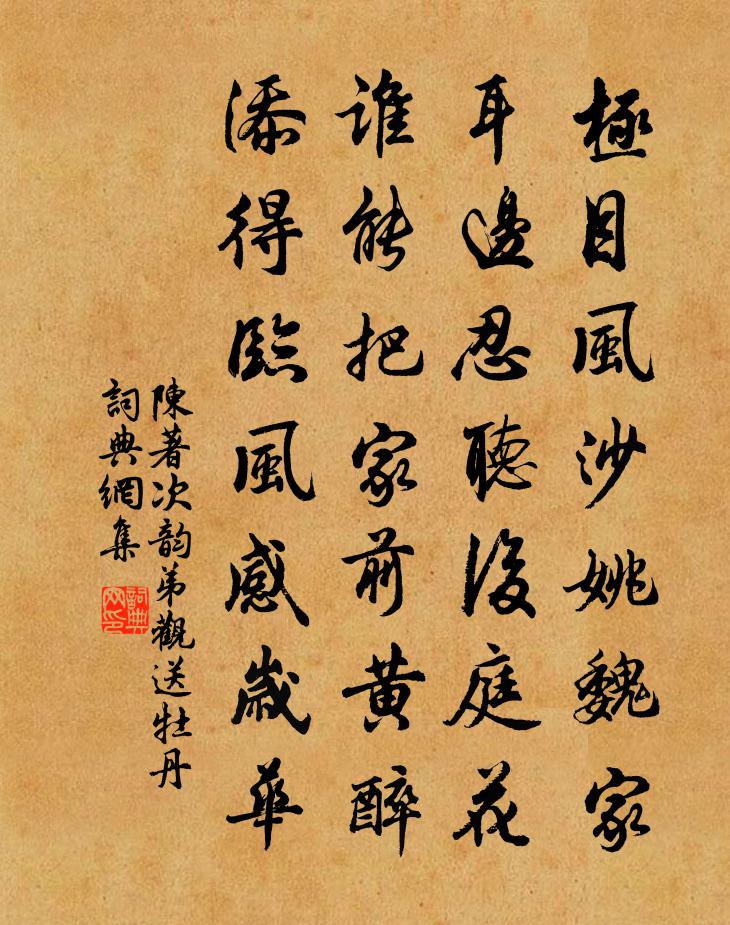 極目風沙姚魏家
耳邊忍聽後庭花
誰能把家前黄醉
添得臨風感歲華
陳著次韵弟觀送牡丹
詞典網集
詞典網印